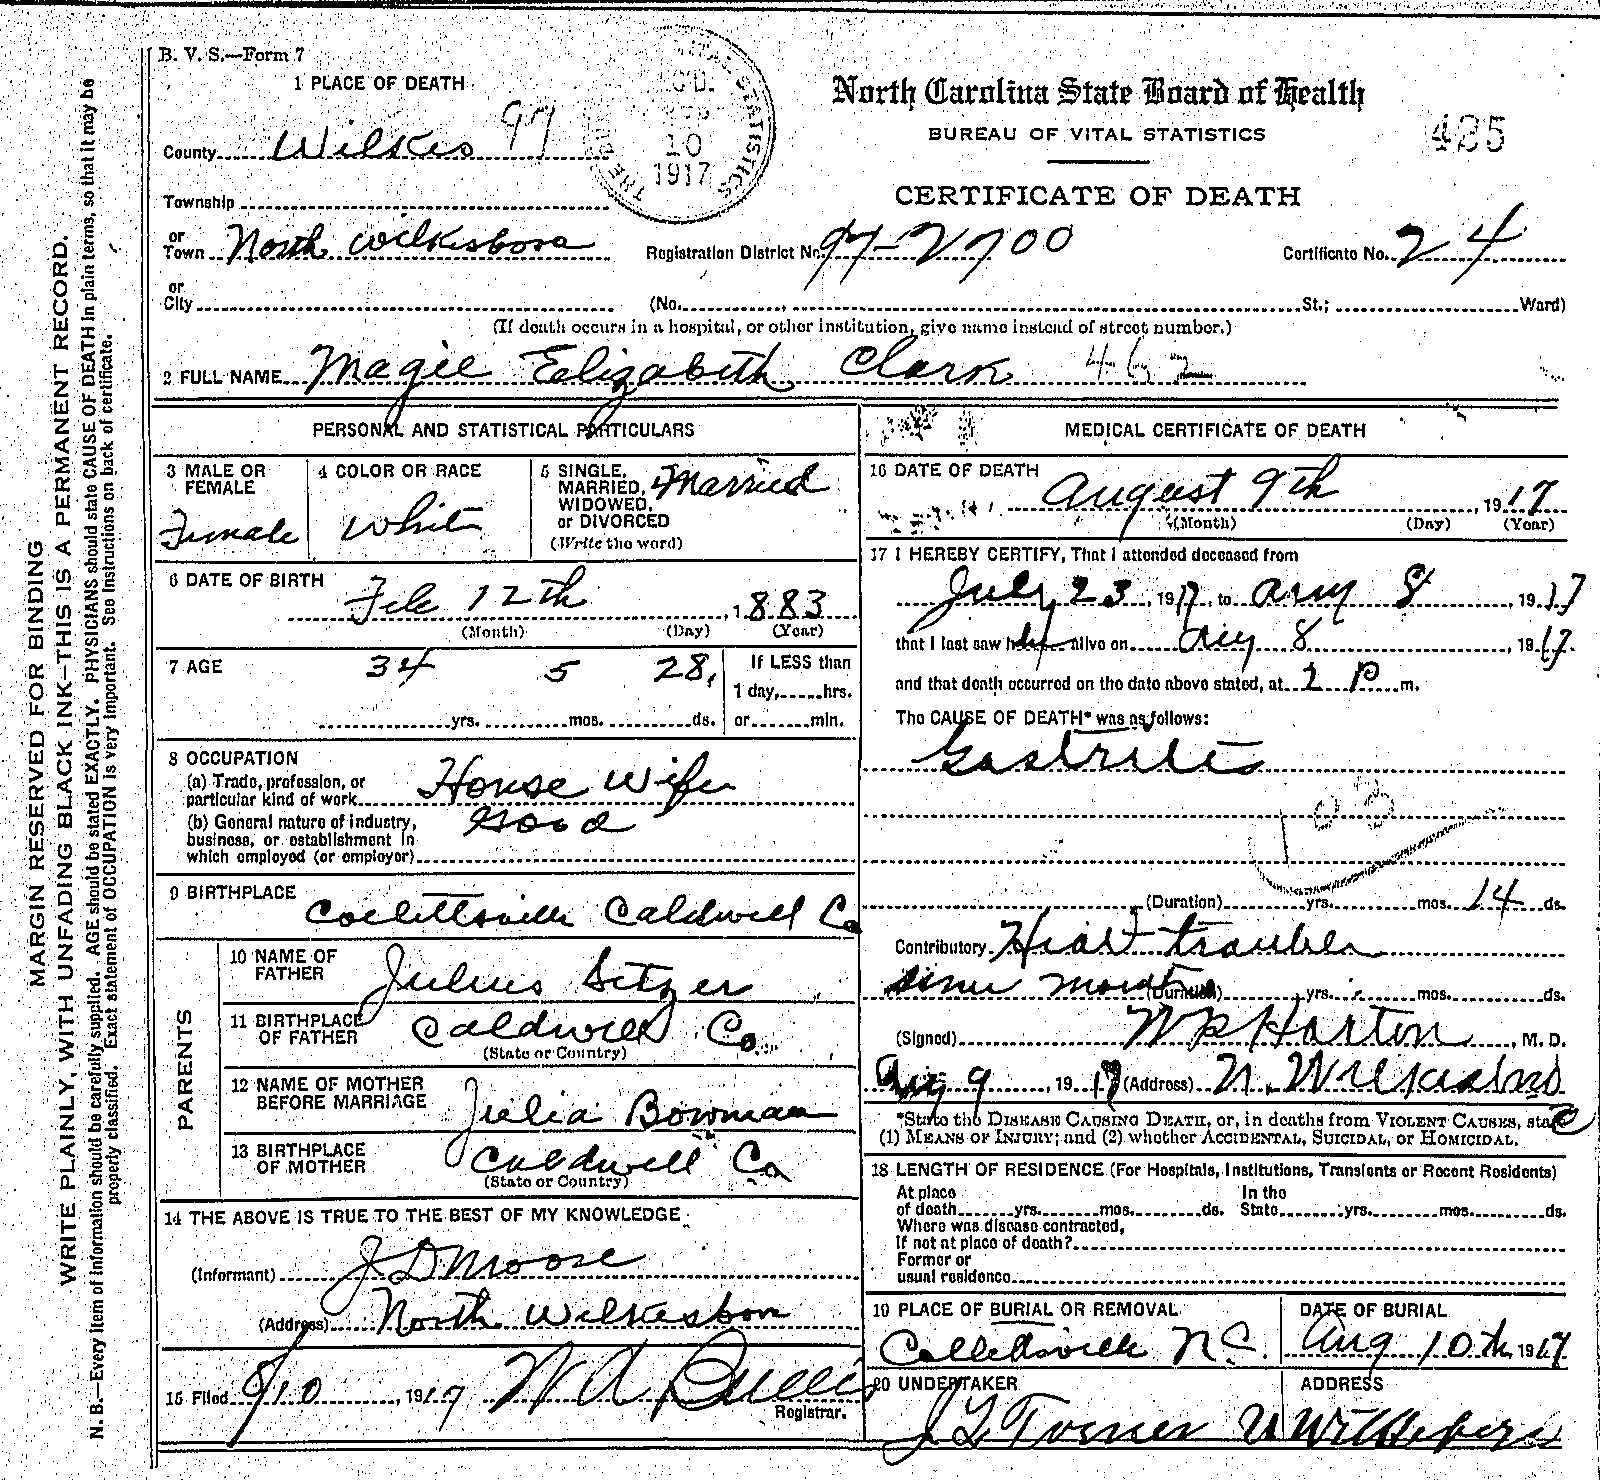 B. V. S.—Form 7
1 PLACE OF DEATH
County Wilkes 97
Township
or
Town North Wilkesboro
or
City (No. , St.; Ward)
(If death occurs in a hospital, or other institution, give name instead of street number.)
North Carolina State Board of Health
BUREAU OF VITAL STATISTICS
CERTIFICATE OF DEATH
425
10
1917
Registration District No. 97-2700
Certificate No. 24
2 FULL NAME Magie Elizabeth Clark 462
PERSONAL AND STATISTICAL PARTICULARS
3 MALE OR FEMALE
Female
4 COLOR OR RACE
White
5 SINGLE, MARRIED, WIDOWED, or DIVORCED
(Write the word)
Married
6 DATE OF BIRTH
Feb 12th, 1883
(Month) (Day) (Year)
7 AGE
34 yrs. 5 mos. 28, ds.
If LESS than
1 day, hrs.
or min.
8 OCCUPATION
(a) Trade, profession, or
particular kind of work House Wife
(b) General nature of industry,
business, or establishment in
which employed (or employer)
Good
9 BIRTHPLACE
Collettsville Caldwell Co
PARENTS
10 NAME OF FATHER
Julius Setzer
11 BIRTHPLACE OF FATHER
Caldwell Co.
(State or Country)
12 NAME OF MOTHER BEFORE MARRIAGE
Julia Bowman
13 BIRTHPLACE OF MOTHER
Caldwell Co
(State or Country)
14 THE ABOVE IS TRUE TO THE BEST OF MY KNOWLEDGE
(Informant) J D Moose
(Address) North Wilkesboro
15 Filed 8/10, 1917 W A Bullis
Registrar.
MEDICAL CERTIFICATE OF DEATH
16 DATE OF DEATH
August 9th, 1917
(Month) (Day) (Year)
17 I HEREBY CERTIFY, That I attended deceased from
July 23, 1917, to Aug 8, 1917
that I last saw her alive on Aug 8 1917.
and that death occurred on the date above stated, at 2 P m.
The CAUSE OF DEATH* was as follows:
Gastritis
103
(Duration) yrs. mos. 14 ds.
Contributory Heart trouble
(Duration) yrs. mos. ds.
(Signed) W P Horton, M. D.
Aug 9, 1917 (Address) N. Wilkesboro
*State the DISEASE CAUSING DEATH, or, in deaths from VIOLENT CAUSES, state
(1) MEANS OF INJURY; and (2) whether ACCIDENTAL, SUICIDAL, or HOMICIDAL.
18 LENGTH OF RESIDENCE (For Hospitals, Institutions, Transients or Recent Residents)
At place
of death yrs. mos. ds.
In the
State yrs. mos. ds.
Where was disease contracted,
If not at place of death?
Former or
usual residence
19 PLACE OF BURIAL OR REMOVAL
Collettsville N C.
DATE OF BURIAL
Aug 10th, 1917
20 UNDERTAKER
J L Turner
ADDRESS
N Wilkesboro
MARGIN RESERVED FOR BINDING
WRITE PLAINLY, WITH UNFADING BLACK INK—THIS IS A PERMANENT RECORD.
N. B.—Every item of information should be carefully supplied. AGE should be stated EXACTLY. PHYSICIANS should state CAUSE OF DEATH in plain terms, so that it may be
properly classified. Exact statement of OCCUPATION is very important. See instructions on back of certificate.